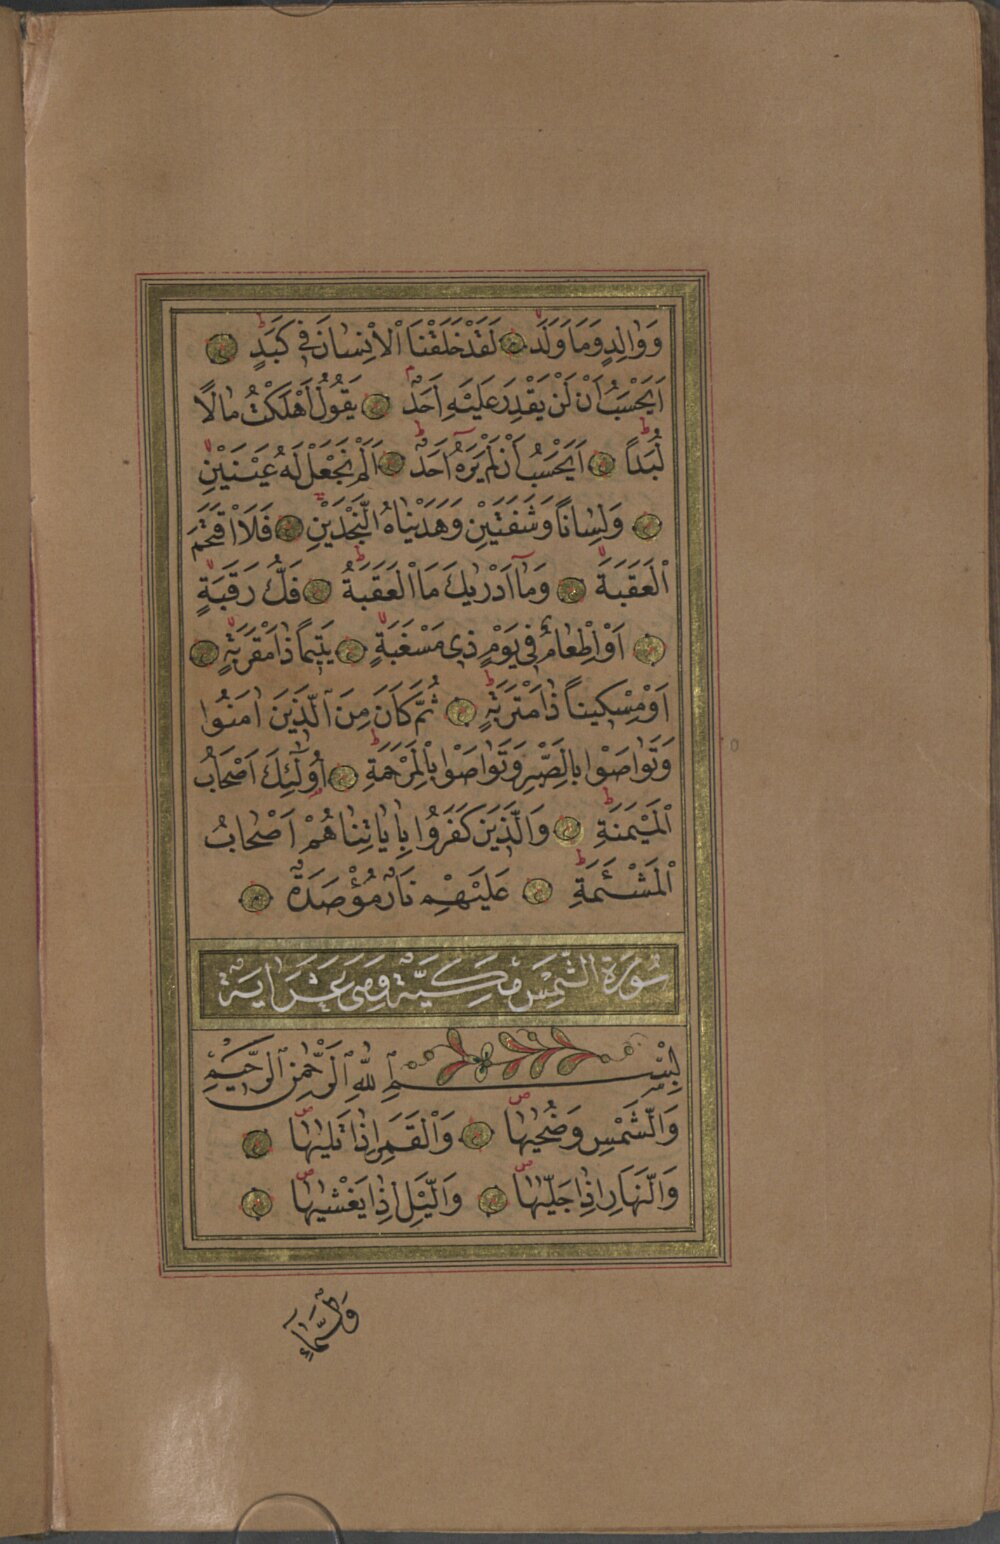 وَوَالِدٍ وَمَا وَلَدَ لَقَدْ خَلَقْنَا الْاِنْسَانَ فِي كَبَدٍ
اَيَحْسَبُ اَنْ لَنْ يَقْدِرَ عَلَيْهِ اَحَدٌ يَقُولُ اَهْلَكْتُ مَالًا
لُبَدًا اَيَحْسَبُ اَنْ لَمْ يَرَهُ اَحَدٌ اَلَمْ نَجْعَلْ لَهُ عَيْنَيْنِ
وَلِسَانًا وَشَفَتَيْنِ وَهَدَيْنَاهُ النَّجْدَيْنِ فَلَا اقْتَحَمَ
الْعَقَبَةَ وَمَا اَدْرٰيكَ مَا الْعَقَبَةُ فَكُّ رَقَبَةٍ
اَوْ اِطْعَامٌ فِي يَوْمٍ ذِي مَسْغَبَةٍ يَتِيمًا ذَا مَقْرَبَةٍ
اَوْ مِسْكِينًا ذَا مَتْرَبَةٍ ثُمَّ كَانَ مِنَ الَّذِينَ اٰمَنُوا
وَتَوَاصَوْا بِالصَّبْرِ وَتَوَاصَوْا بِالْمَرْحَمَةِ اُولٰئِكَ اَصْحَابُ
الْمَيْمَنَةِ وَالَّذِينَ كَفَرُوا بِاٰيَاتِنَا هُمْ اَصْحَابُ
الْمَشْئَمَةِ عَلَيْهِمْ نَارٌ مُؤْصَدَةٌ
سُورَةُ الشَّمْسِ مَكِّيَّةٌ وَهِيَ عَشَرَ اٰيَة
بِسْمِ اللّٰهِ الرَّحْمٰنِ الرَّحِيمِ
وَالشَّمْسِ وَضُحٰيهَا وَالْقَمَرِ اِذَا تَلٰيهَا
وَالنَّهَارِ اِذَا جَلّٰيهَا وَالَّيْلِ اِذَا يَغْشٰيهَا
وَالسَّمَاءِ